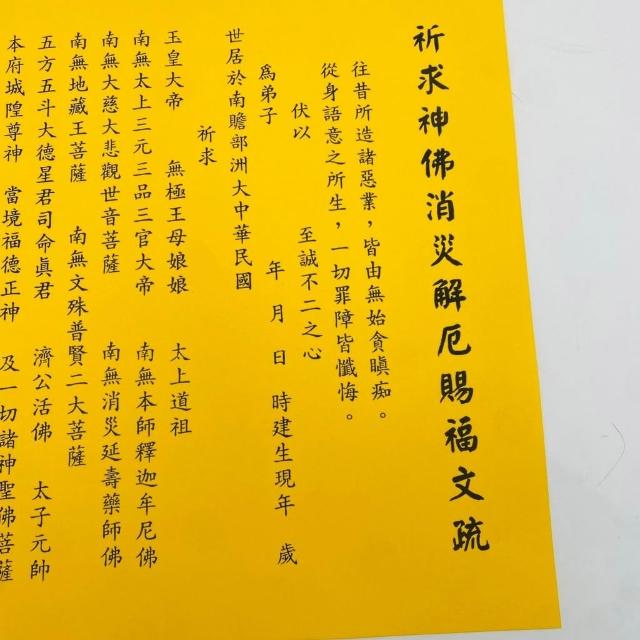 祈求神佛消災解厄賜福文疏
往昔所造諸惡業，皆由無始貪瞋痴。
從身語意之所生，一切罪障皆懺悔。
伏以　至誠不二之心
為弟子　年　月　日　時建生現年　歲
世居於南贍部洲大中華民國
祈求
玉皇大帝　無極王母娘娘　太上道祖
南無太上三元三品三官大帝　南無本師釋迦牟尼佛
南無大慈大悲觀世音菩薩　南無消災延壽藥師佛
南無地藏王菩薩　南無文殊普賢二大菩薩
五方五斗大德星君司命眞君　濟公活佛　太子元帥
本府城隍尊神　當境福德正神　及一切諸神聖佛菩薩